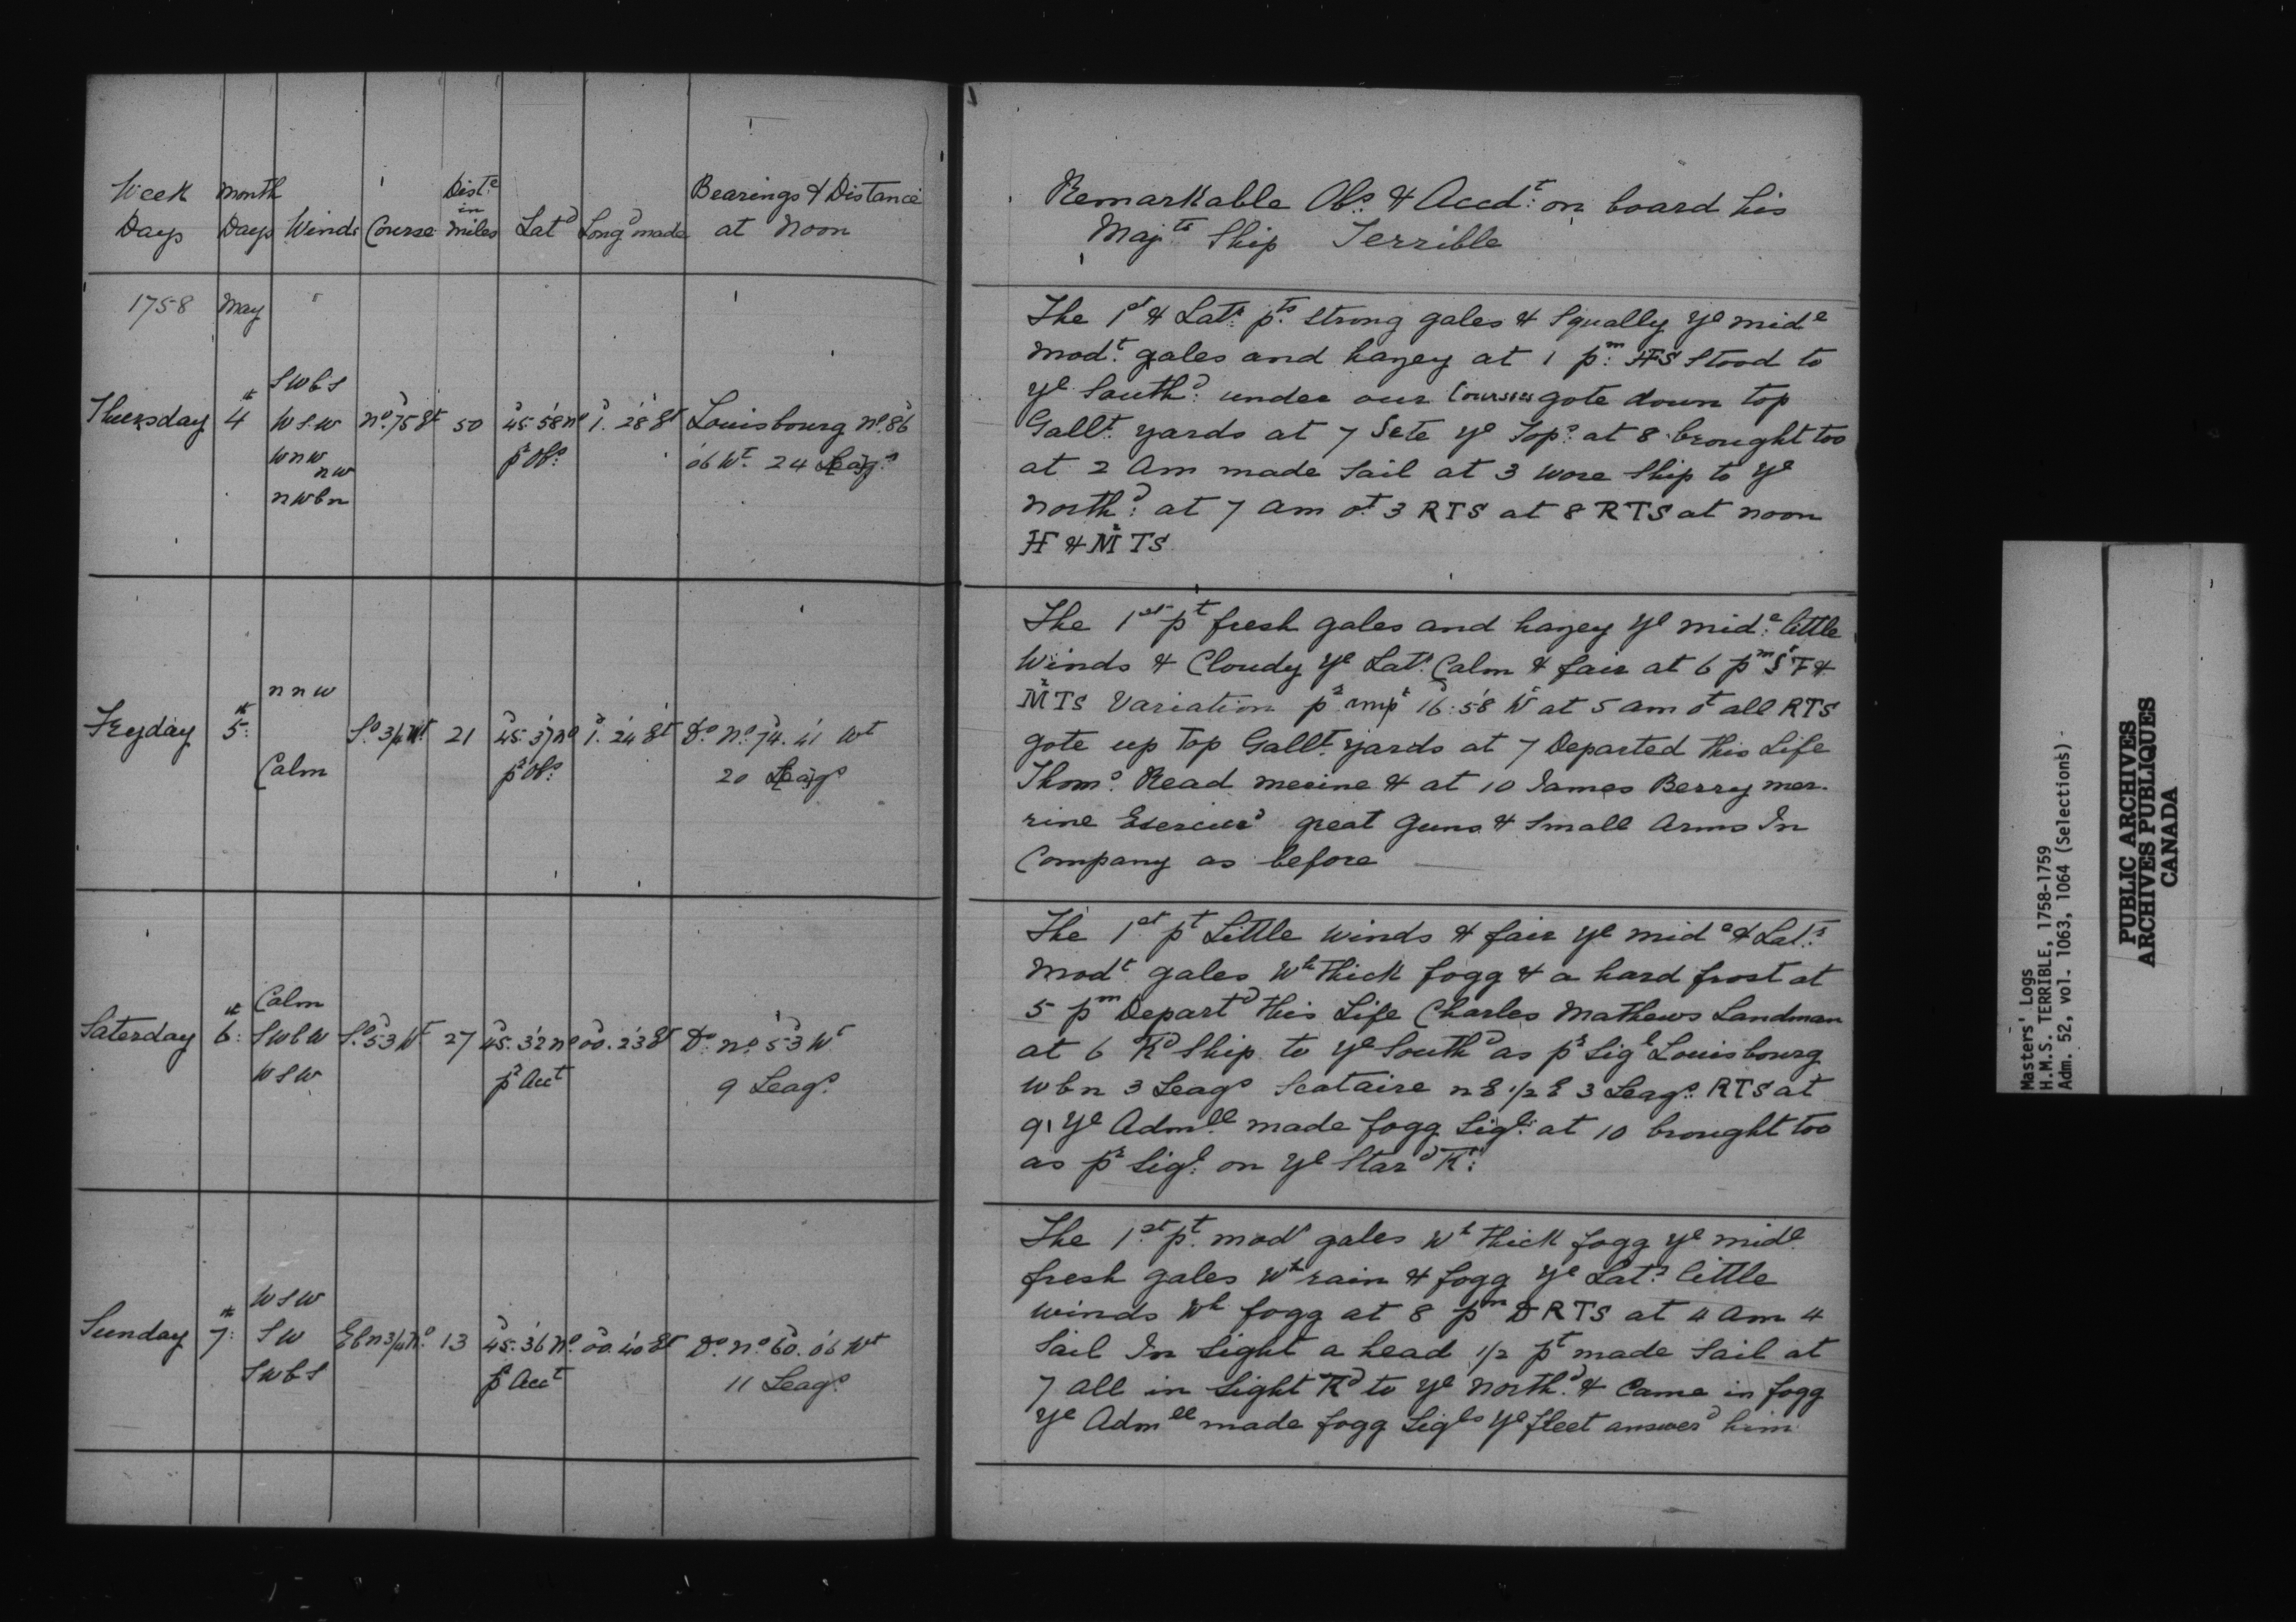 Week Month Dist.e Bearings & Distance
in
Days Days Winds Course miles Lat.d Long.d made at Noon
1758 May
SWbS
Thursday 4th WSW No. 75 Et 50 45. 58 No 1. 28 Et Louisbourg No. 86
WNW pr Obs. 06 Wt. 24 Leags
NW
NWbN
NNW
Freyday 5th So 3/4 Wt 21 45. 37 No 1. 24 Et Do No. 74. 41 Wt
Calm pr Obs. 20 Leags
Calm
Saterday 6th SWbW So. 53 Wt 27 45. 32 No 00. 23 Et Do No. 53 Wt
WSW pr Acct 9 Leags
WSW
Sunday 7th SW EbN 3/4 No. 13 45. 36 No. 00. 40 Et Do. No. 60. 06 Wt
SWbS pr Acct 11 Leags
Remarkable Obs. & Accdt: on board his
Majts Ship Terrible
The 1st & Latr pts strong gales & Squally ye mide
modt. gales and hazey at 1 pm HS Stood to
ye Southd: under our Courses gote down top
Gallt. yards at 7 Sete ye Tops. at 8 brought too
at 2 Am made Sail at 3 wore Ship to ye
Northd: at 7 am ot 3 RTS at 8 RTS at noon
H & Mn TS
The 1st pt fresh gales and hazey ye mide: little
Winds & Cloudy ye Latr. Calm & fair at 6 pm S F &
Mn TS Variation pr 16:58 Wt at 5 am ot all RTS
gote up top Gallt. yards at 7 Departed this Life
Thoms. Read merine & at 10 James Berry mer-
rine Exercised great Guns & Small Arms In
Company as before
The 1st pt Little winds & fair ye mide & Latr.
modt gales wh thick fogg & a hard frost at
5 pm Departd this Life Charles Mathews Landman
at 6 Tkd Ship to ye Southd as pr Sigl Louisbourg
WbN 3 Leags Scataire NE 1/2 E 3 Leags. RTS at
9 ye Admll made fogg Sigl: at 10 brought too
as pr Sigl: on ye Stard Tk:
The 1st pt. modt gales wh thick fogg ye mide
fresh gales wh rain & fogg ye Latr little
winds wh fogg at 8 pm D RTS at 4 am 4
Sail In Sight a head 1/2 pt made Sail at
7 all in Sight Tkd to ye Northd. & Came in fogg
ye Admll made fogg Sigls ye fleet answerd him
Masters' Logs
H.M.S. TERRIBLE, 1758-1759
Adm. 52, vol. 1063, 1064 (Selections)
PUBLIC ARCHIVES
ARCHIVES PUBLIQUES
CANADA